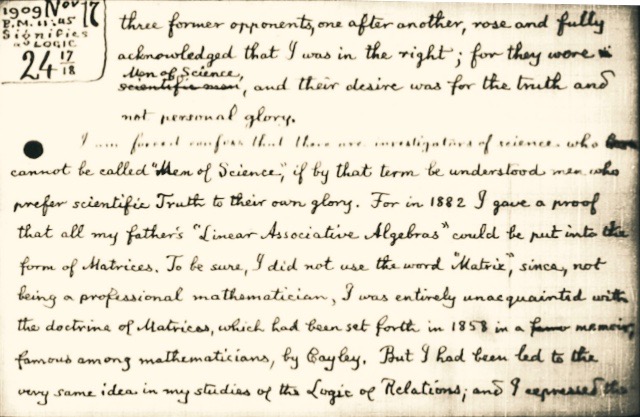 1909 Nov 17
P.M. 11:45
Significs
as LOGIC
24 17/18
three former opponents, one after another, rose and fully
acknowledged that I was in the right; for they were
Men of Science,
scientific men, and their desire was for the truth and
not personal glory.
I am forced confess that there are investigators of science who
cannot be called "Men of Science", if by that term be understood men who
prefer scientific Truth to their own glory. For in 1882 I gave a proof
that all my father's "Linear Associative Algebras" could be put into the
form of Matrices. To be sure, I did not use the word "Matrix", since, not
being a professional mathematician, I was entirely unacquainted with
the doctrine of Matrices, which had been set forth in 1858 in a memoir,
famous among mathematicians, by Cayley. But I had been led to the
very same idea in my studies of the Logic of Relations; and I expressed